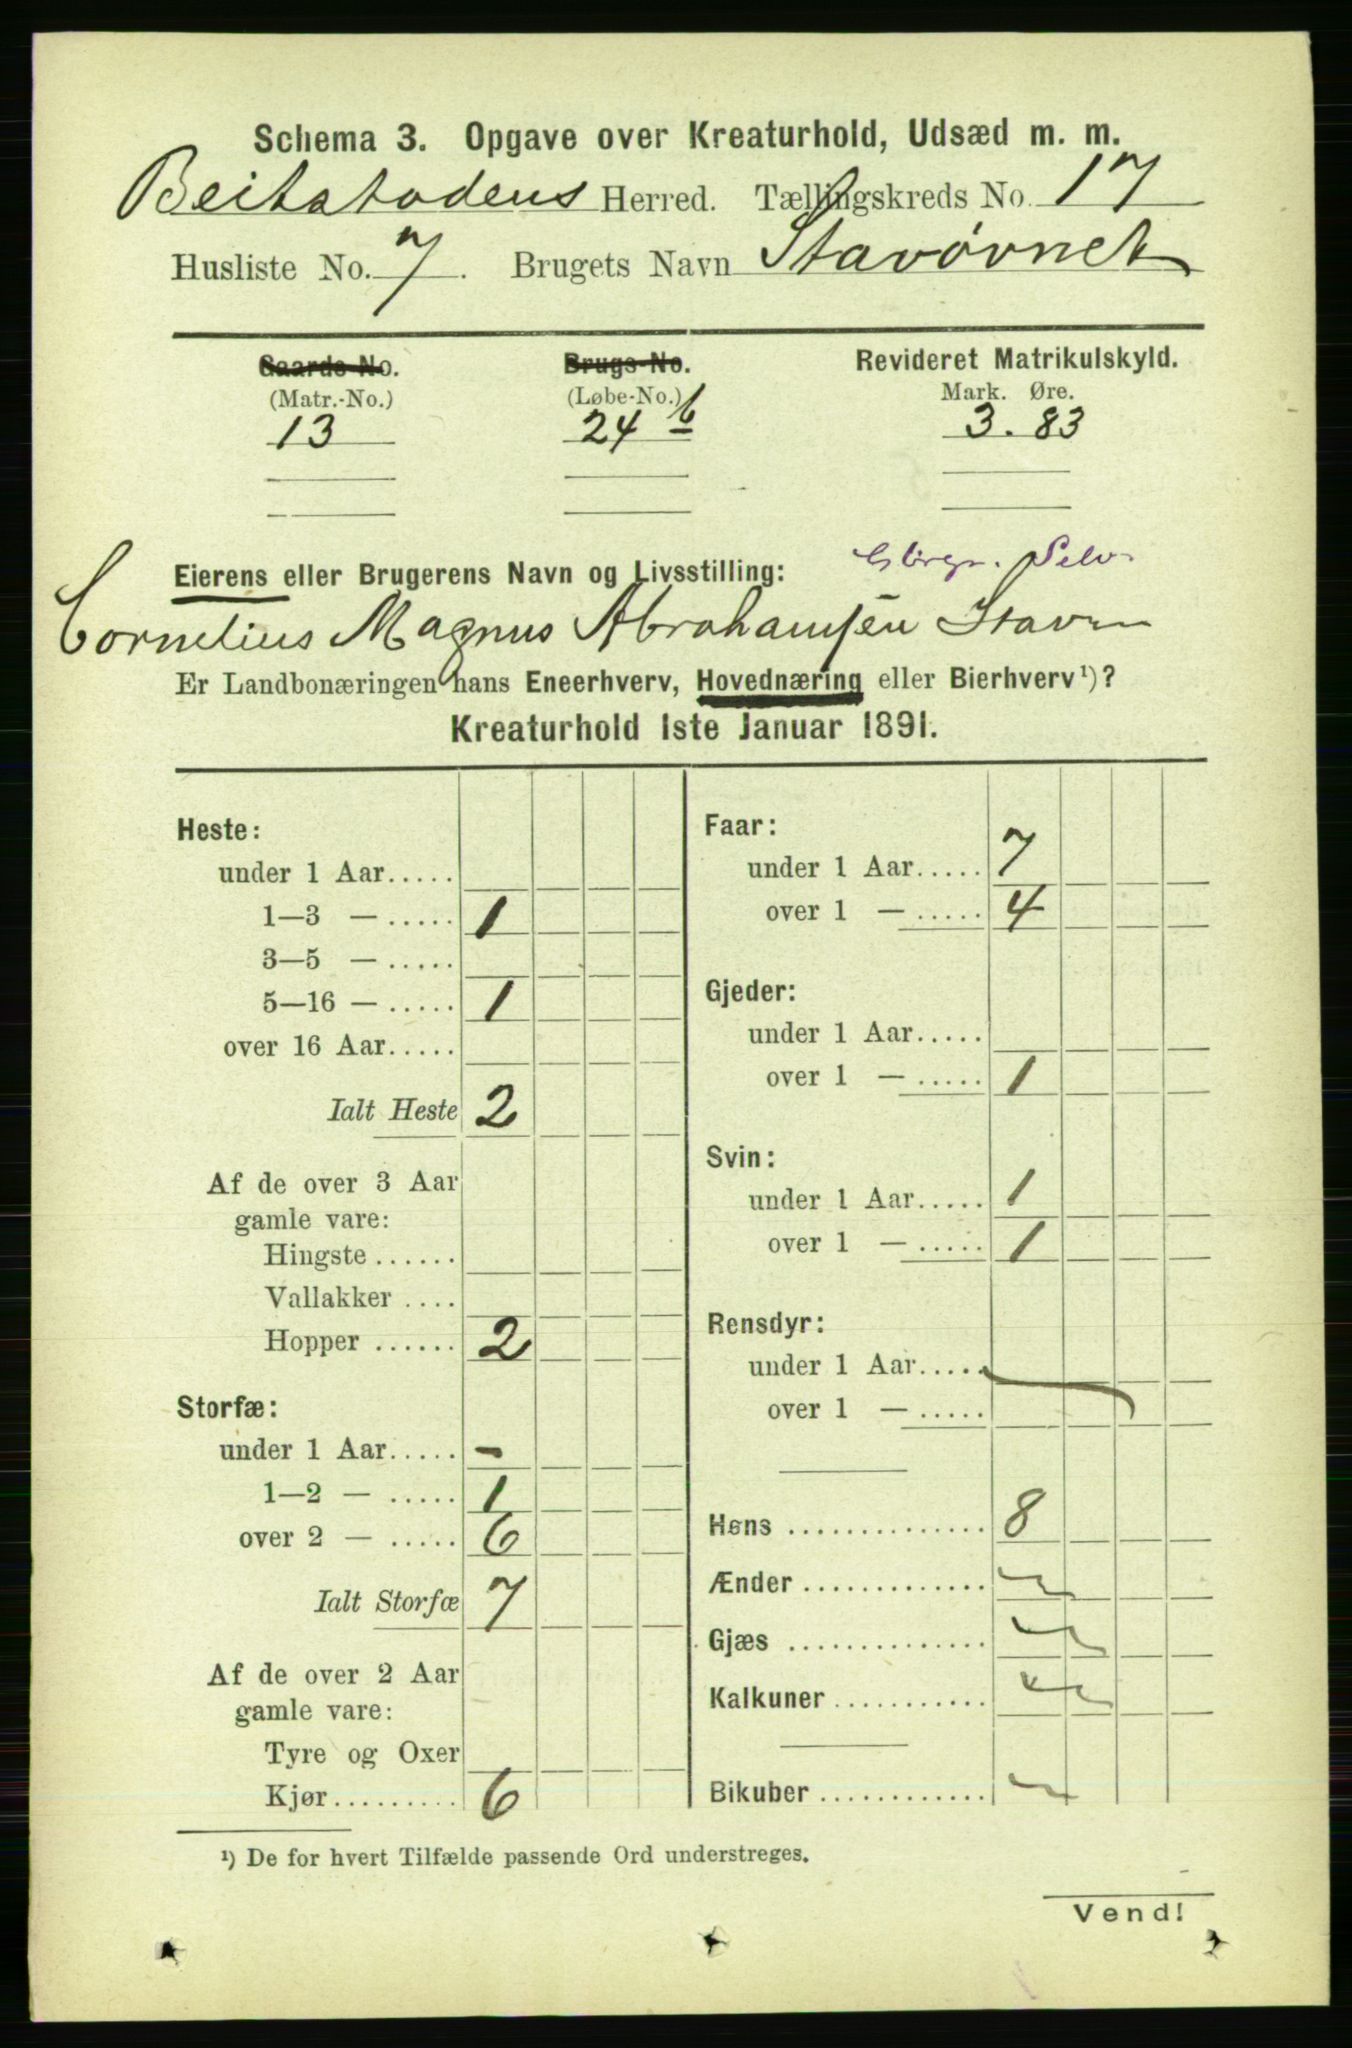 Schema 3. Opgave over Kreaturhold, Udsæd m. m.
Beitstadens Herred. Tællingskreds No. 17
Husliste No. 7. Brugets Navn Stavøvnet
Gaards-No. Brugs-No. Revideret Matrikulskyld.
(Matr.-No.) (Løbe-No.) Mark. Øre.
13 24 b 3. 83
Eierens eller Brugerens Navn og Livsstilling: Selv
Cornelius Magnus Abrahamsen
Er Landbonæringen hans Eneerhverv, Hovednæring eller Bierhverv¹)?
Kreaturhold 1ste Januar 1891.
Heste:
under 1 Aar.....
1—3 — ..... 1
3—5 — .....
5—16 — ..... 1
over 16 Aar.....
Ialt Heste 2
Af de over 3 Aar
gamle vare:
Hingste ......
Vallakker ....
Hopper ...... 2
Storfæ:
under 1 Aar..... -
1—2 — ..... 1
over 2 — ..... 6
Ialt Storfæ 7
Af de over 2 Aar
gamle vare:
Tyre og Oxer
Kjør......... 6
Faar:
under 1 Aar..... 7
over 1 — ..... 4
Gjeder:
under 1 Aar.....
over 1 — ..... 1
Svin:
under 1 Aar..... 1
over 1 — ..... 1
Rensdyr:
under 1 Aar.....
over 1 — .....
Høns .............. 8
Ænder .............
Gjæs ..............
Kalkuner ...........
Bikuber ............
¹) De for hvert Tilfælde passende Ord understreges.
Vend!